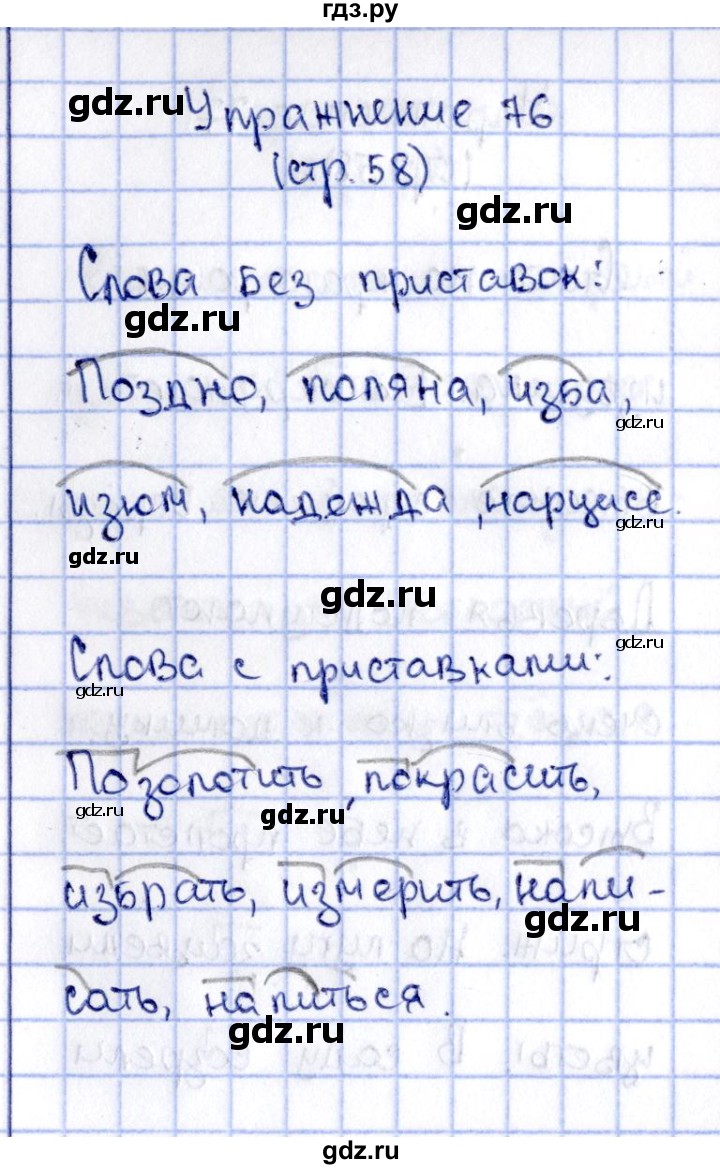 гдз.ру
gdz.ru
Упражнение 76
(стр. 58)
gdz.ru
Слова без приставок:
gdz.ru
Поздно, поляна, изба,
gdz.ru
изюм, надежда, нарцисс.
gdz.ru
gdz.ru
gdz.ru
gdz.ru
Слова с приставками:
gdz.ru
Позолотить, покрасить,
gdz.ru
gdz.ru
gdz.ru
избрать, измерить, напи-
gdz.ru
сать, напиться.
gdz.ru
gdz.ru
gdz.ru